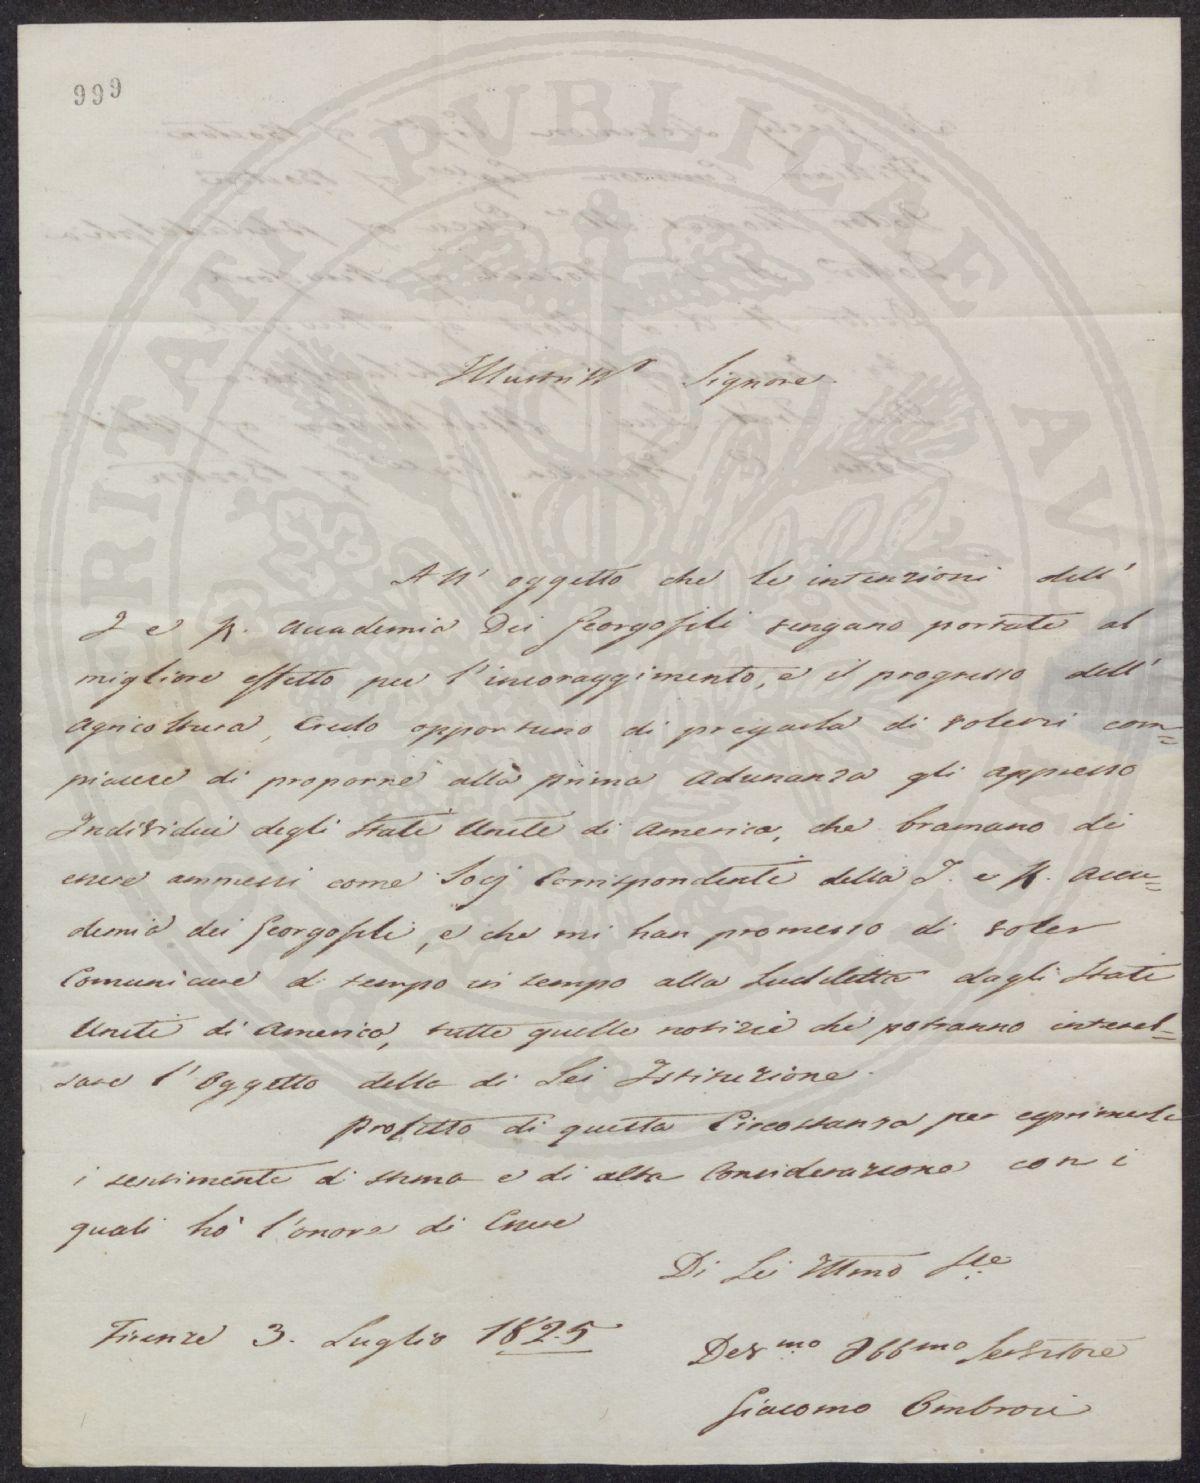 999
Illustriss.o Signore
All' oggetto che le intenzioni dell'
I e R. Accademia Dei Georgofili vengano portate al
migliore effetto per l'incoraggimento, e il progresso dell'
Agricoltura, Credo opportuno di pregarla di volersi com=
piacere di proporre alla prima Adunanza gli appresso
Individui degli Stati Uniti di America, che bramano di
essere ammessi come Socj Corrispondenti della I. e R. Acca=
demia dei Georgofili, e che mi han promesso di voler
Comunicare di tempo in tempo alla Suddetta dagli Stati
Uniti di America, tutte quelle notizie che potranno interes=
sare l'Oggetto della di Lei Istituzione.
Profitto di questa Circostanza per esprimerle
i sentimenti di stima e di alta Considerazione con i
quali hò l'onore di Essere
Di Lei Illmo Sre
Firenze 3. Luglio 1825
Dev.mo Obb.mo Servitore
Giacomo Ombrosi
PVBLICAE